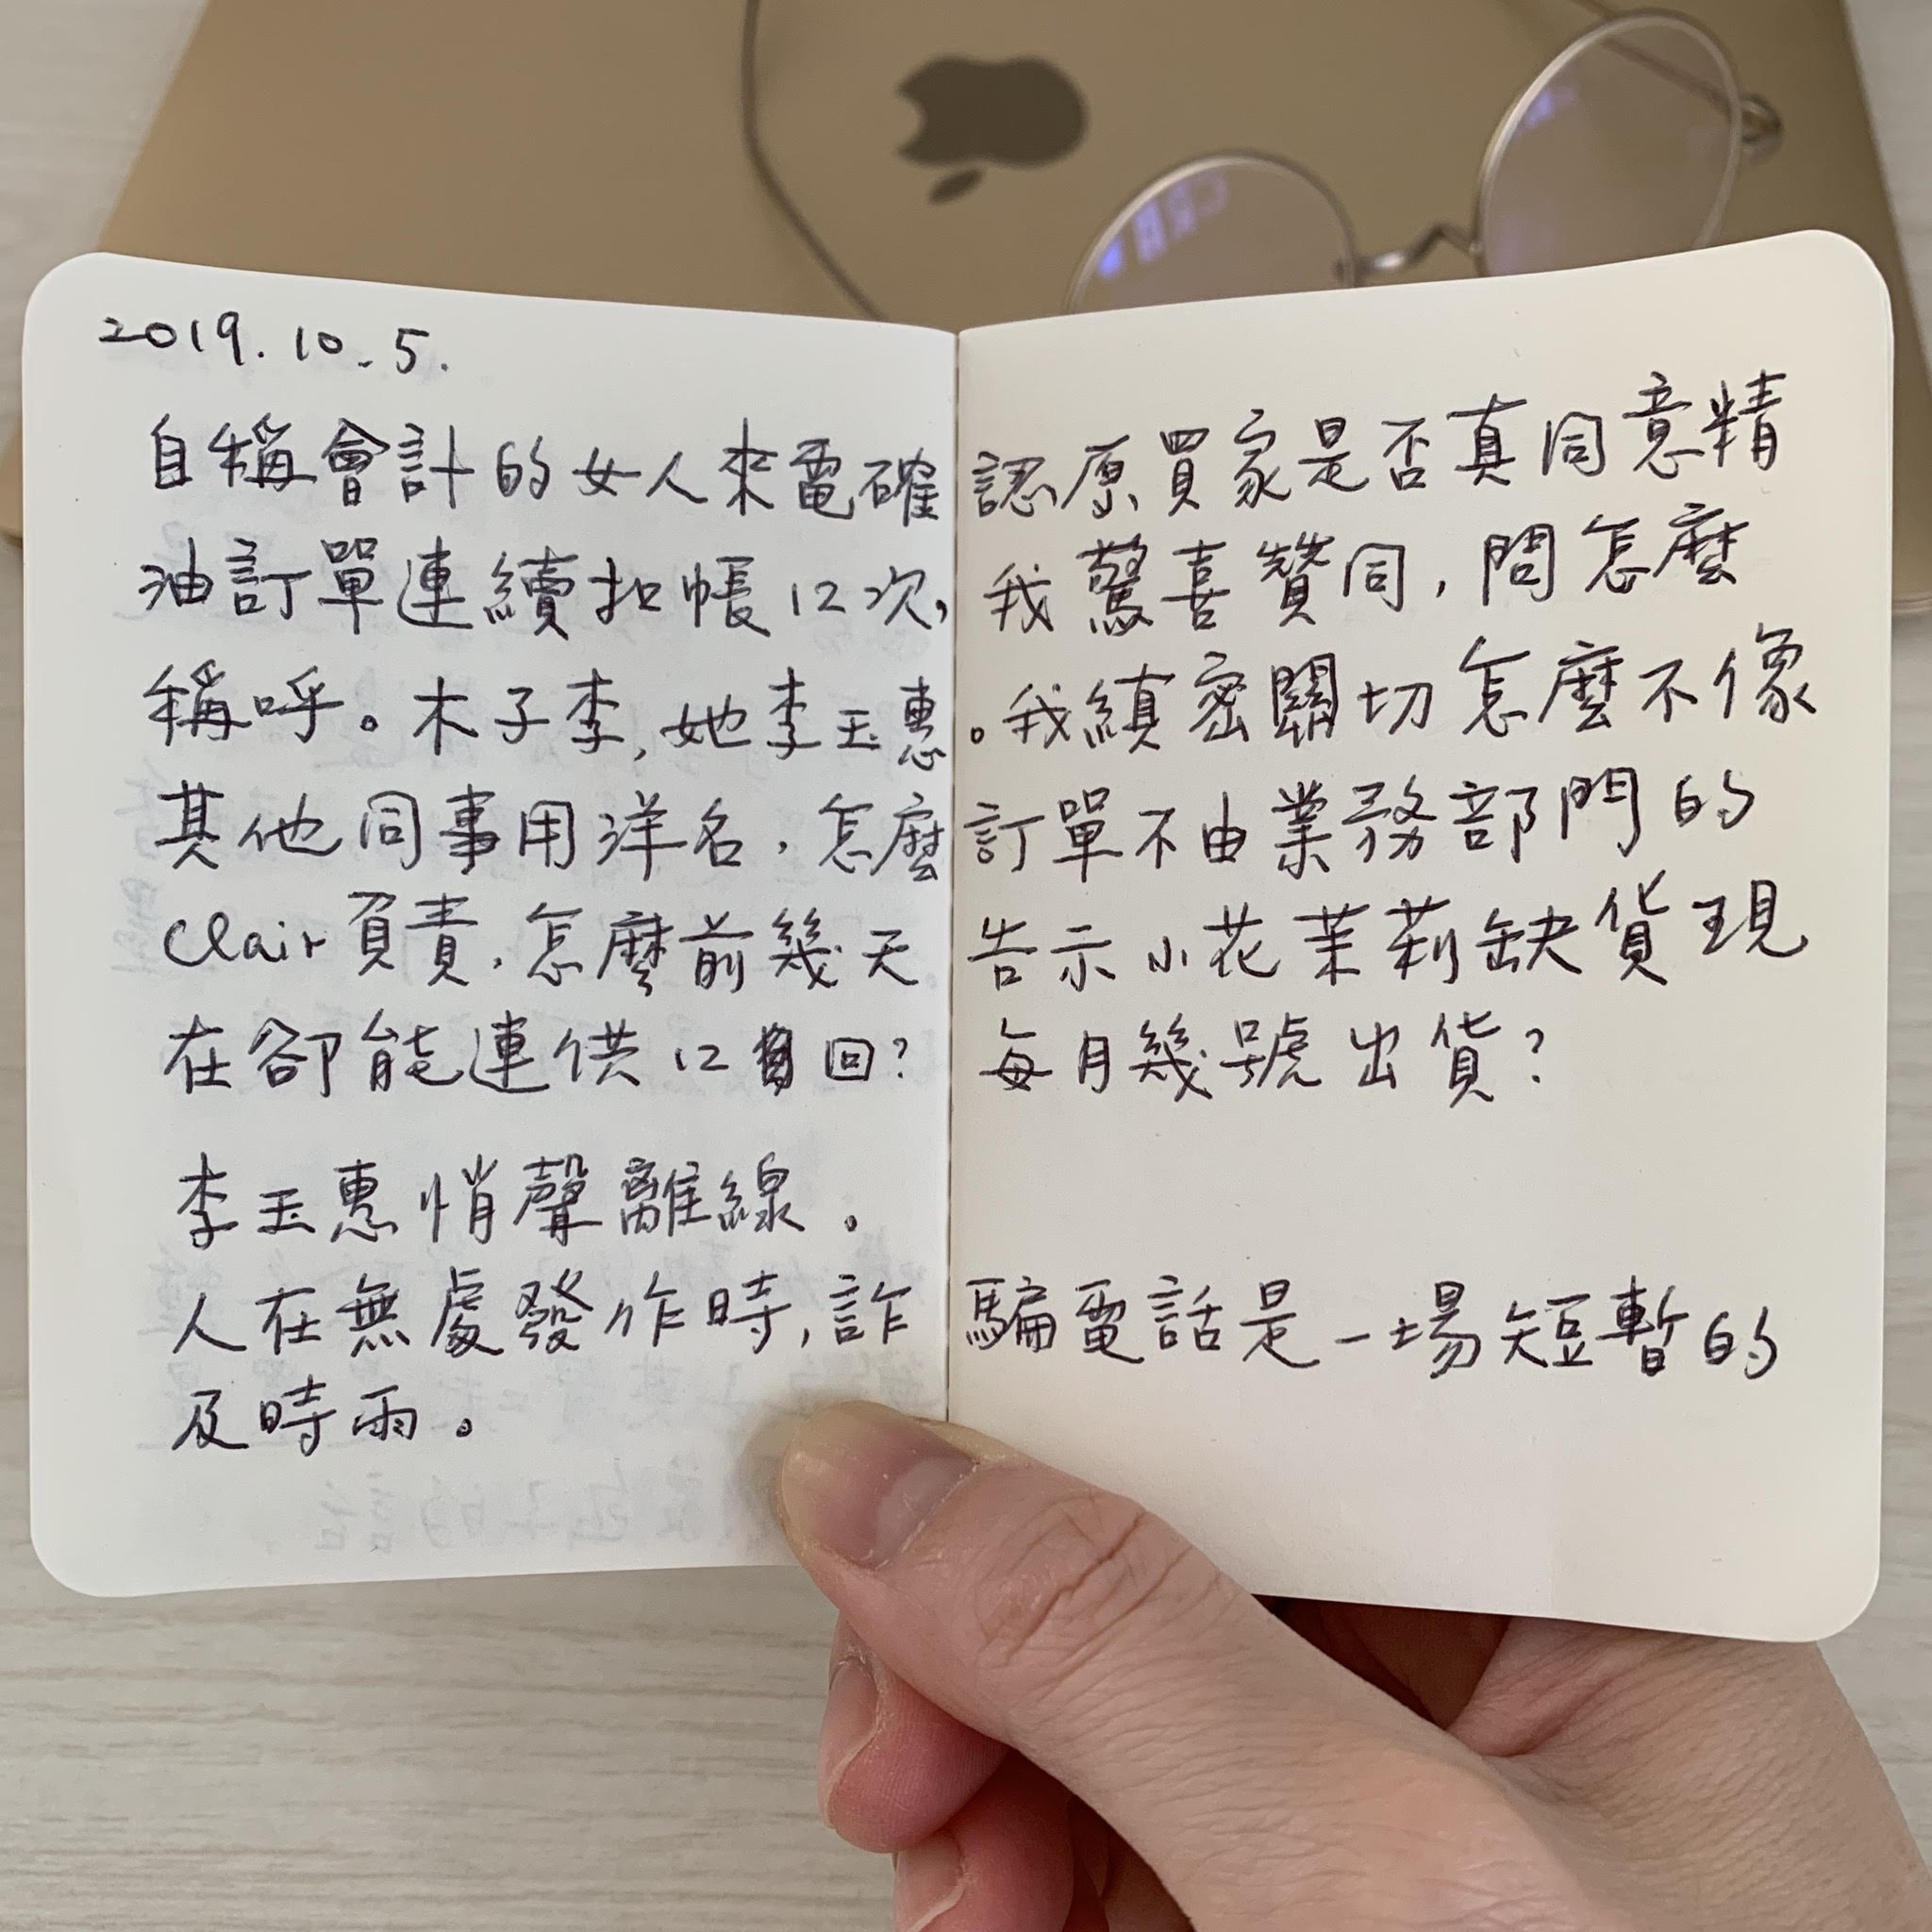 2019.10.5.
自稱會計的女人來電確認原買家是否真同意精
油訂單連續扣帳12次，我驚喜贊同，問怎麼
稱呼。木子李，她李玉惠。我縝密關切怎麼不像
其他同事用洋名，怎麼訂單不由業務部門的
Clair負責，怎麼前幾天告示小花茉莉缺貨現
在卻能連供12回？每月幾號出貨？
李玉惠悄聲離線。
人在無處發作時，詐騙電話是一場短暫的
及時雨。